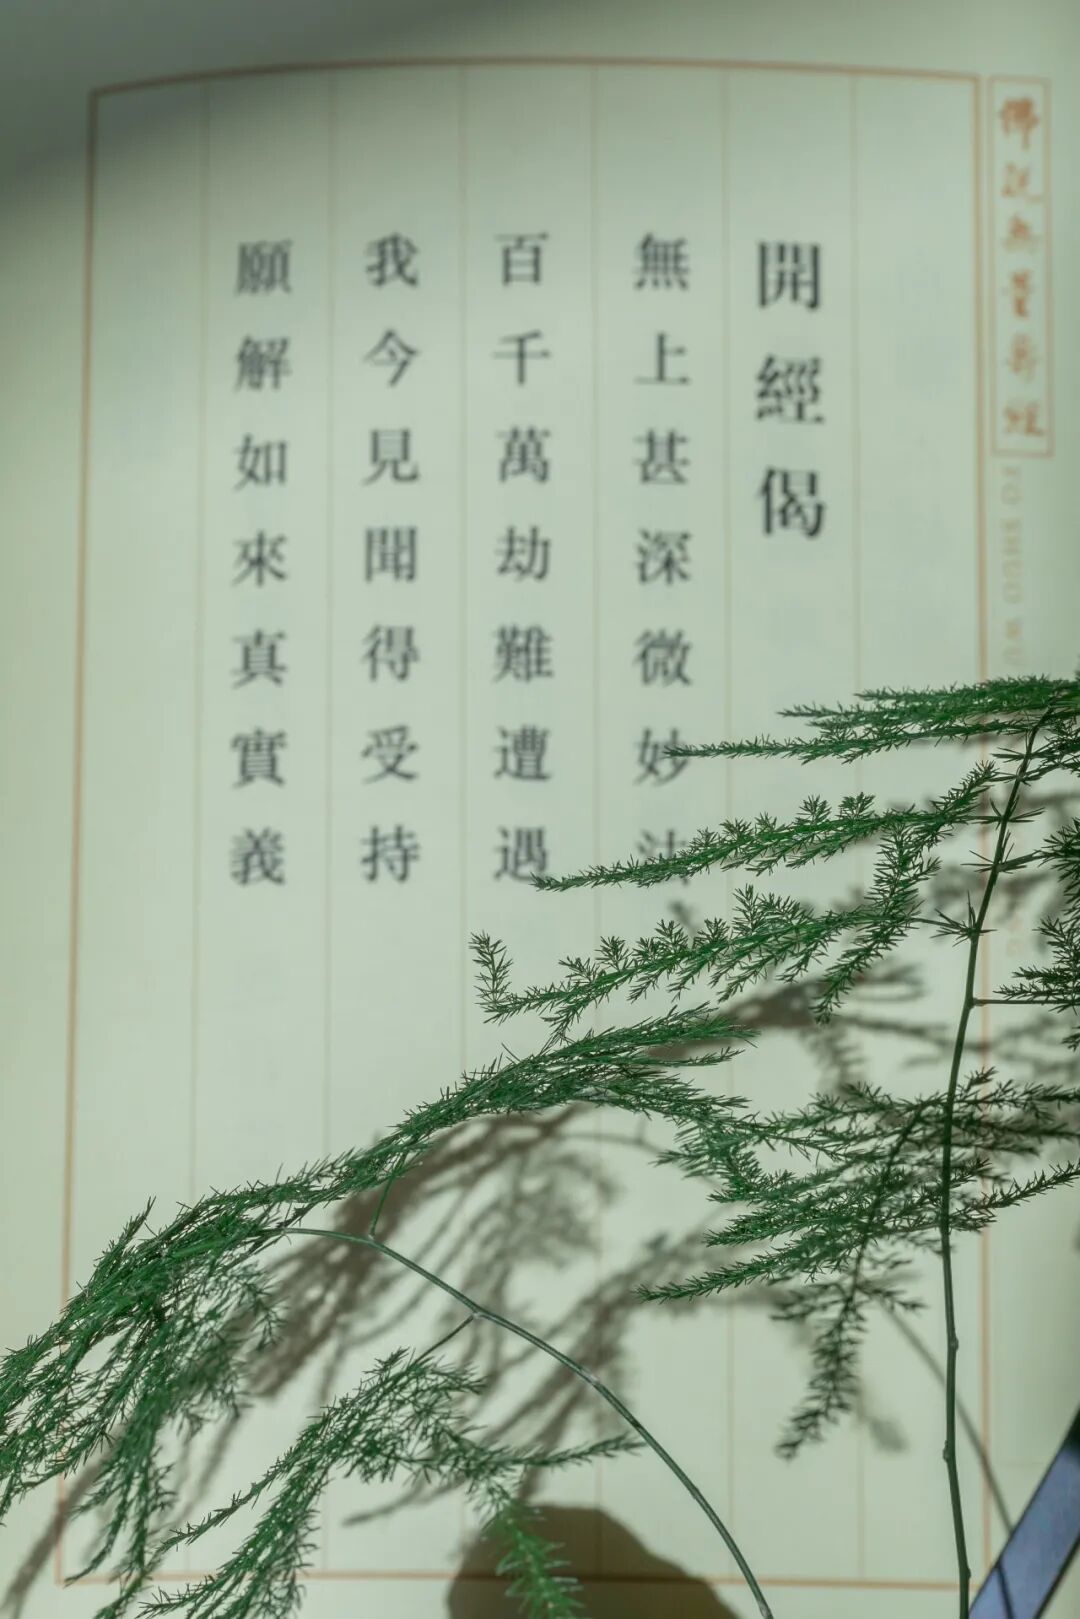 佛說無量壽經
FO SHUO WU
開經偈
無上甚深微妙法
百千萬劫難遭遇
我今見聞得受持
願解如來真實義